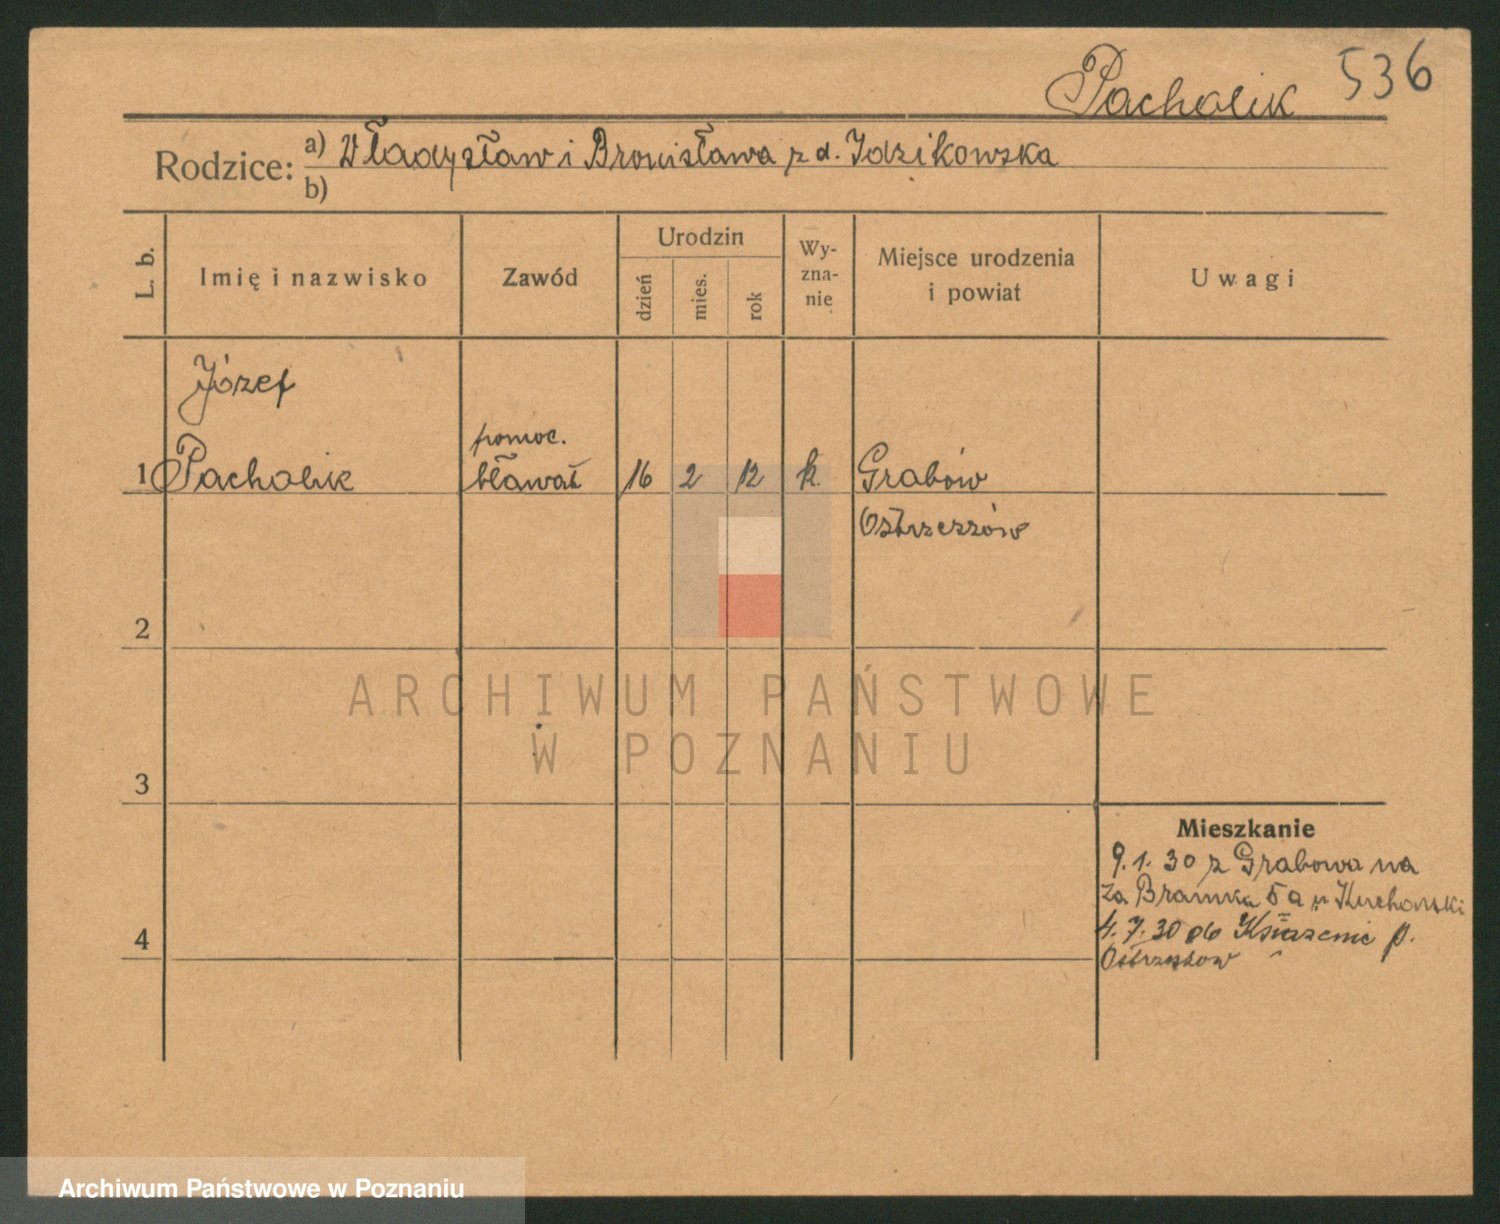 Pacholik 536
Rodzice: a) Władysław i Bronisława z d. Idzikowska
b)
L. b. Imię i nazwisko Zawód Urodzin dzień mies. rok Wy-zna-nie Miejsce urodzenia i powiat Uwagi
Józef
pomoc.
1 Pacholik bławat 16 2 12 k. Grabów
Ostrzeszów
2
ARCHIWUM PAŃSTWOWE
W POZNANIU
3
Mieszkanie
9.1.30 z Grabowa na
za Bramka 5a u Kucharski
4.7.30 do Książenic p.
4
Ostrzeszow
Archiwum Państwowe w Poznaniu